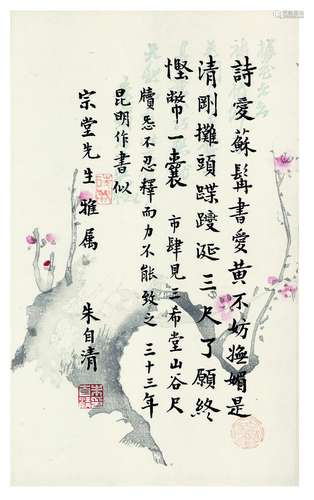 詩愛蘇髯書愛黃不妨嫵媚是
清剛攤頭蹀躞涎三尺了願終
慳幣一囊 市肆見三希堂山谷尺
牘㤅不忍釋而力不能致之 三十三年
昆明作書似
宗堂先生雅屬 朱自清